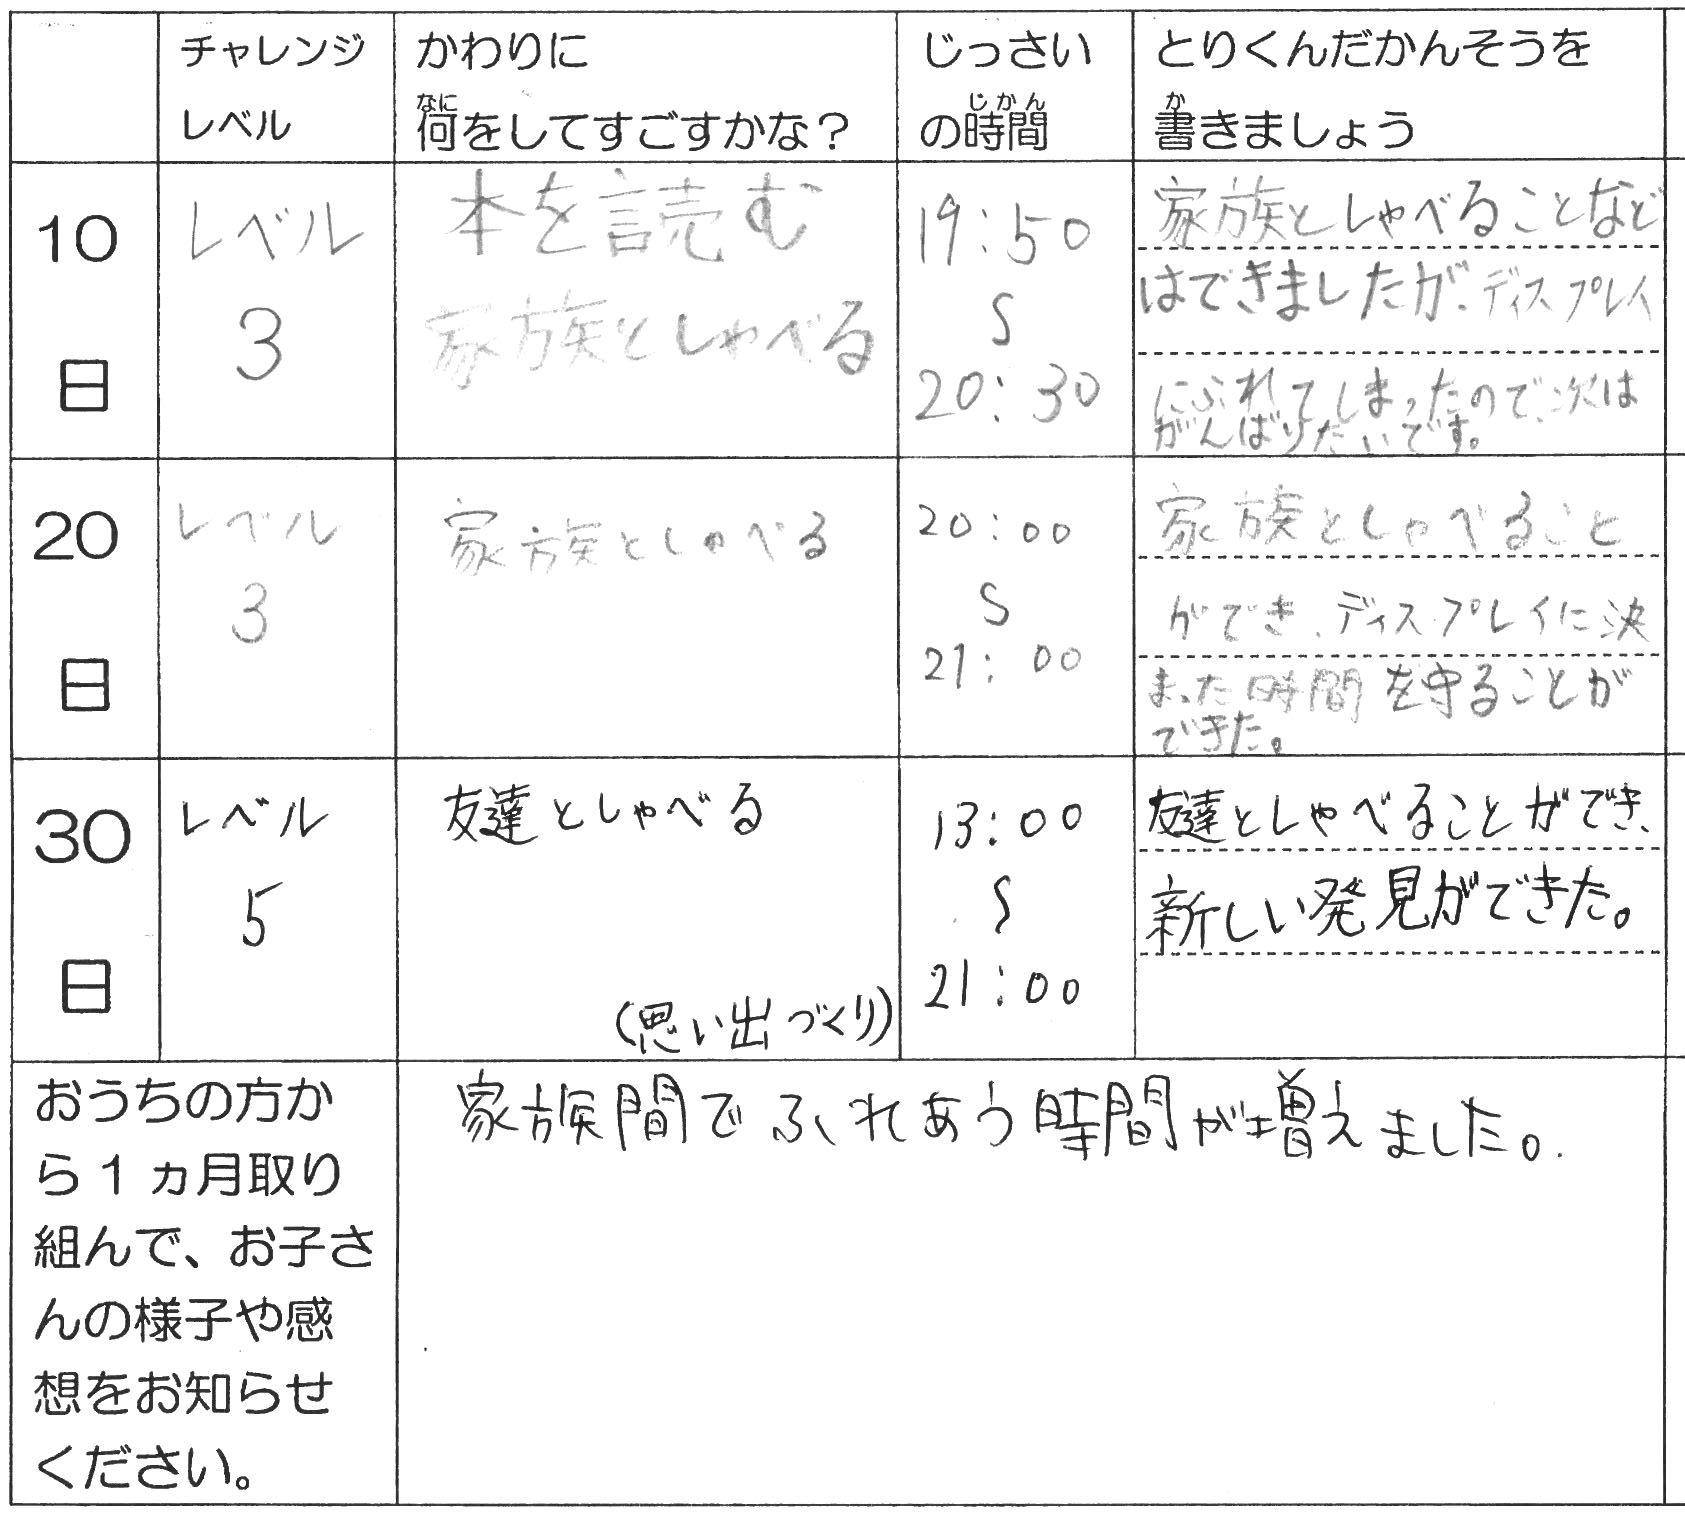 チャレンジ
レベル
かわりに
なに
何をしてすごすかな？
じっさい
じかん
の時間
とりくんだかんそうを
か
書きましょう
10
日
レベル
3
本を読む
家族としゃべる
19:50
〜
20:30
家族としゃべることなど
はできましたが、ディスプレイ
にふれてしまったので、次は
がんばりたいです。
20
日
レベル
3
家族としゃべる
20:00
〜
21:00
家族としゃべること
ができ、ディスプレイに決
まった時間を守ることが
できた。
30
日
レベル
5
友達としゃべる
(思い出づくり)
13:00
〜
21:00
友達としゃべることができ、
新しい発見ができた。
おうちの方か
ら1ヵ月取り
組んで、お子さ
んの様子や感
想をお知らせ
ください。
家族間でふれあう時間が増えました。